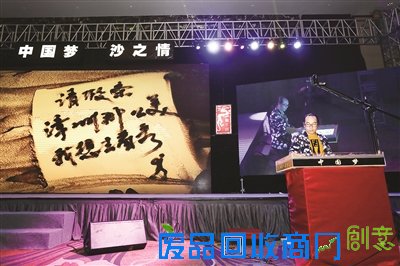 中国梦 沙之情
请假去
漳州那么美
我想去看看
中国梦
废品回收商网
創意